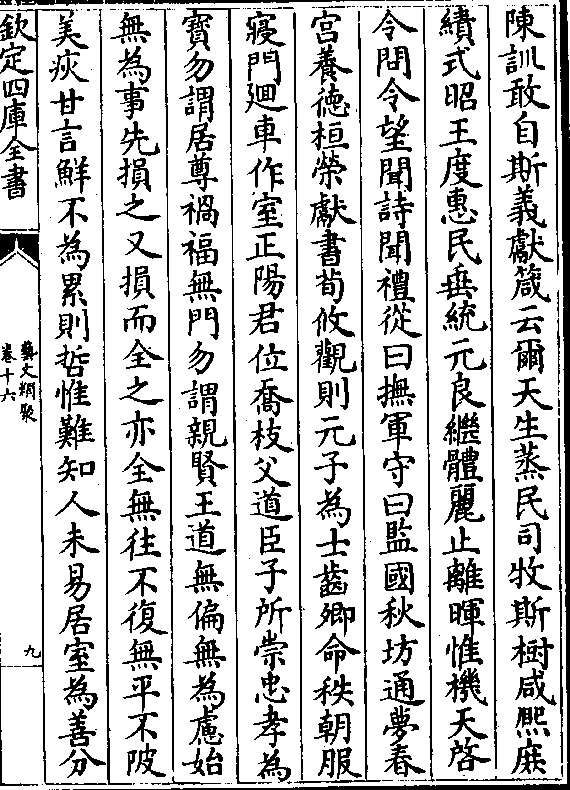 陳訓敢自斯義獻箴云爾天生蒸民司牧斯樹咸熈庶
績式昭王度惠民垂統元良繼體麗止離暉惟機天啓
令問令望聞詩聞禮從曰撫軍守曰監國秋坊通夢春
宮養德桓榮獻書荀攸觀則元子為士齒卿命秩朝服
寢門廻車作室正陽君位喬枝父道臣子所崇忠孝為
寳勿謂居尊禍福無門勿謂親賢王道無偏無為慮始
無為事先損之又損而全之亦全無往不復無平不陂
美疢甘言鮮不為累則哲惟難知人未易居室為善分
欽定四庫全書
藝文類聚
卷十六
九